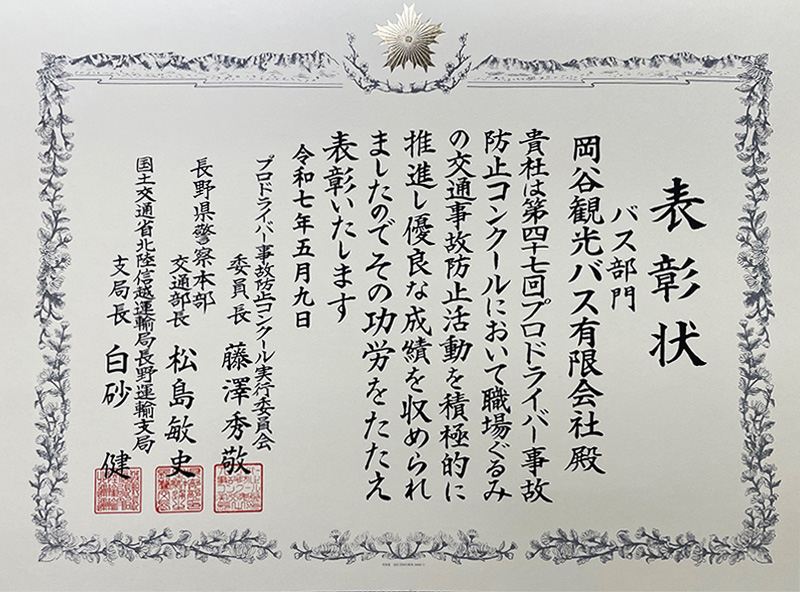 表彰状
バス部門
岡谷観光バス有限会社殿
貴社は第四十七回プロドライバー事故
防止コンクールにおいて職場ぐるみ
の交通事故防止活動を積極的に
推進し優良な成績を収められ
ましたのでその功労をたたえ
表彰いたします
令和七年五月九日
プロドライバー事故防止コンクール実行委員会
委員長 藤澤秀敬
長野県警察本部
交通部長 松島敏史
国土交通省北陸信越運輸局長野運輸支局
支局長 白砂健